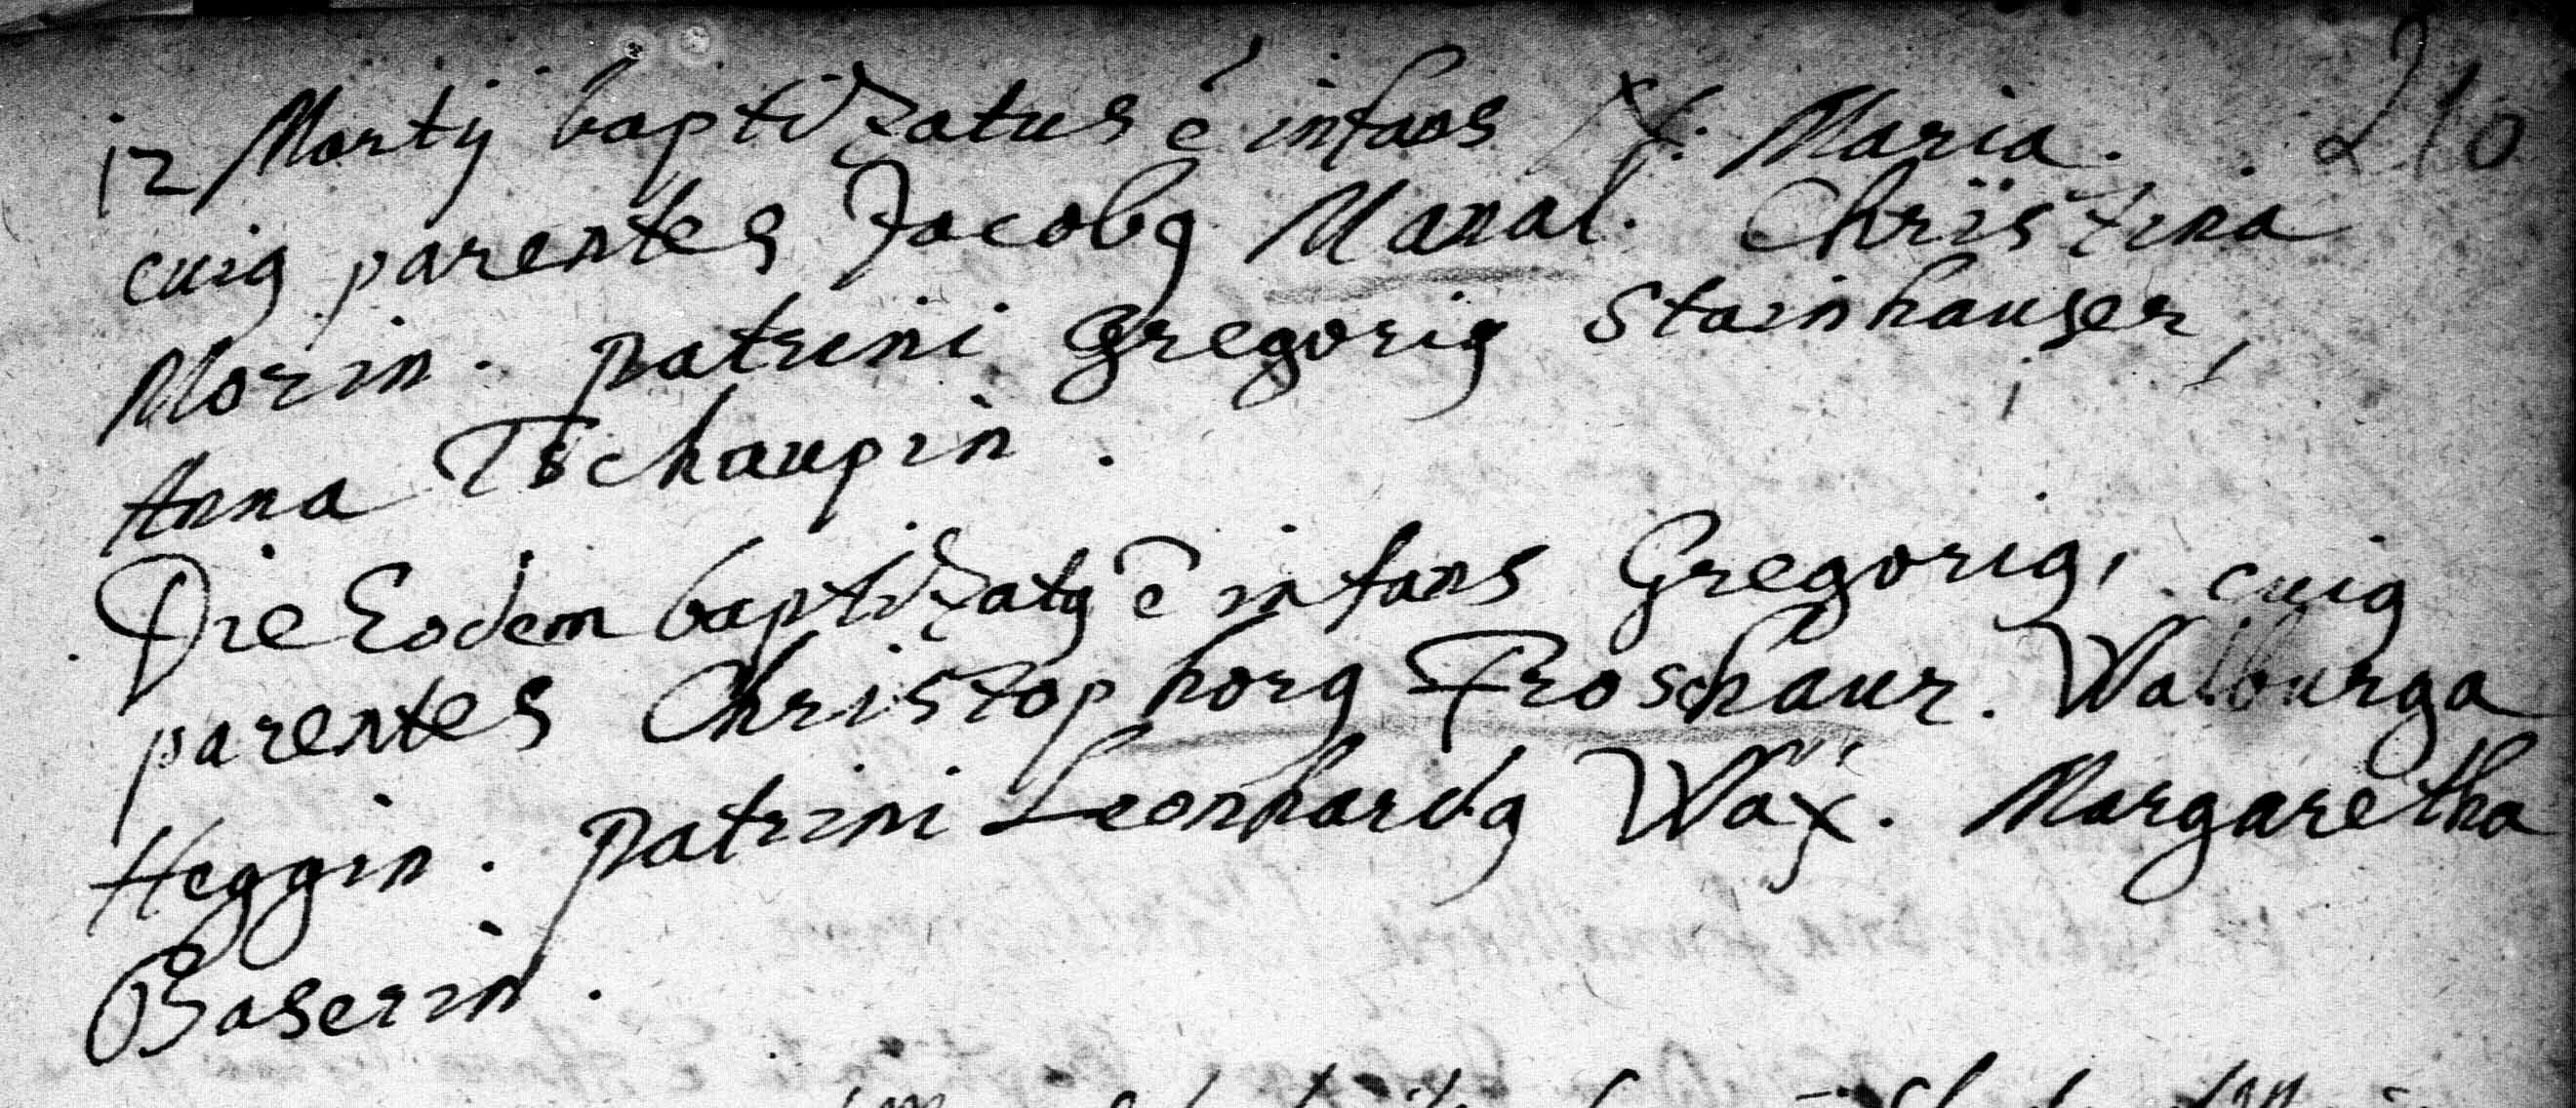 12 Martij baptizatus ē infans Maria. 210
cuiꝯ parentes Jacobꝯ Manal. Christina
Morin. patrini Gregoriꝯ Stainhauser,
Anna Tschaupin.
Die Eodem baptizatꝯ ē infans Gregoriꝯ, cuiꝯ
parentes Christophorꝯ Froschaur. Walburga
Heggin. patrini Leonhardꝯ Wäx. Margaretha
Baserin.